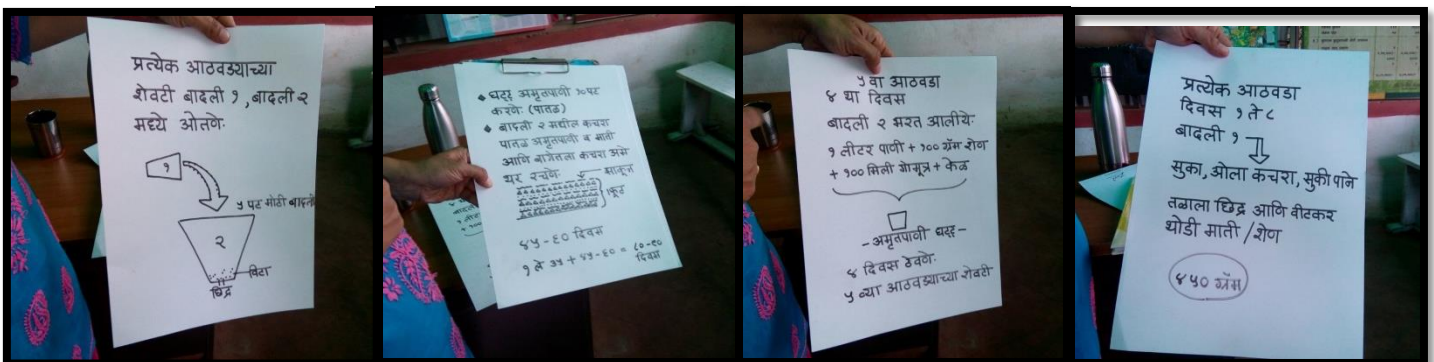 प्रत्येक आठवड्याच्या
शेवटी बादली १, बादली २
मध्ये ओतणे.
१
५ पट मोठी बादली
२
विटा
छिद्र
घट्ट अमृतपाणी १० पट
करणे (पातळ)
बादली २ मधील कचरा
पातळ अमृतपाणी व माती
आणि बागेतला कचरा असे
थर रचणे.
झाकून
१ फूट
४५-६० दिवस
१ ते ३५ + ४५-६० = ८०-९० दिवस
५ वा आठवडा
४ था दिवस
बादली २ भरत आलीये.
१ लीटर पाणी + १०० ग्रॅम शेण
+ १०० मिली गोमूत्र + केळ
-अमृतपाणी घट्ट-
४ दिवस ठेवणे.
५ व्या आठवड्याच्या शेवटी
प्रत्येक आठवडा
दिवस १ ते ८
बादली १
सुका, ओला कचरा, सुकी पाने
तळाला छिद्र आणि वीटकर
थोडी माती / शेण
४५० ग्रॅम